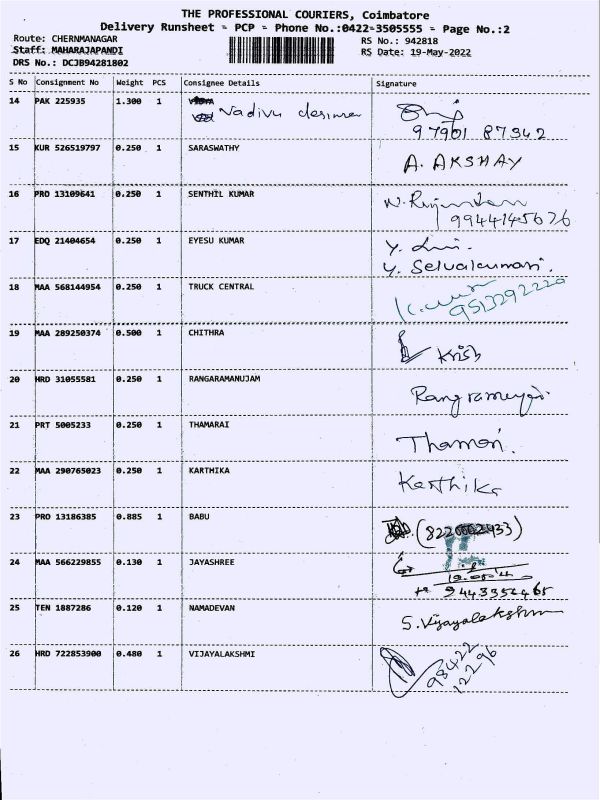 THE PROFESSIONAL COURIERS, Coimbatore
Delivery Runsheet - PCP - Phone No.:0422-3505555 - Page No.:2
Route: CHERNMANAGAR RS No.: 942818
Staff: MAHARAJAPANDI RS Date: 19-May-2022
DRS No.: DCJB94281802
S No Consignment No Weight PCS Consignee Details Signature
14 PAK 225935 1.300 1 Vadivu
97901 87342
15 KUR 526519797 0.250 1 SARASWATHY A. AKSHAY
16 PRO 13109641 0.250 1 SENTHIL KUMAR
9944145676
17 EDQ 21404654 0.250 1 EYESU KUMAR
Y. Selvakumari.
18 MAA 568144954 0.250 1 TRUCK CENTRAL
19 MAA 289250374 0.500 1 CHITHRA Krish
20 HRD 31055581 0.250 1 RANGARAMANUJAM
21 PRT 5005233 0.250 1 THAMARAI
22 MAA 290765023 0.250 1 KARTHIKA Karthika
23 PRO 13186385 0.885 1 BABU
24 MAA 566229855 0.130 1 JAYASHREE
25 TEN 1887286 0.120 1 NAMADEVAN S. Vijayalakshmi
26 HRD 722853900 0.480 1 VIJAYALAKSHMI 98422
12296